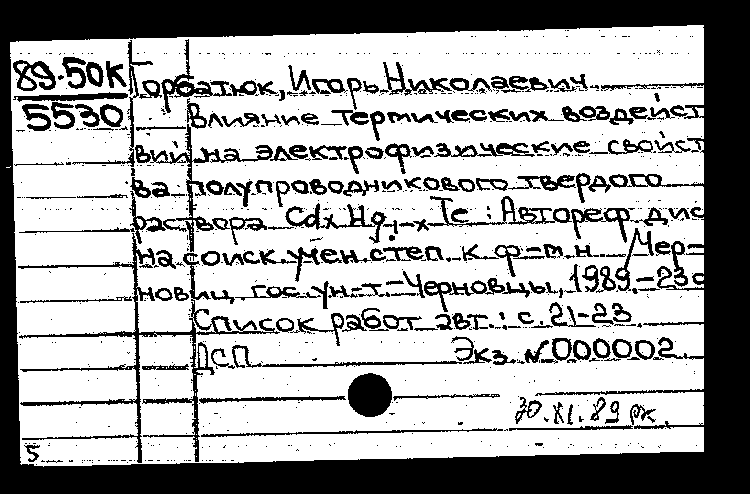 89-50К
5530
Горбатюк, Игорь Николаевич
Влияние термических воздейст
вий на электрофизические свойст
ва полупроводникового твердого
раствора CdxHg1-xTe : Автореф дис
на соиск. учен. степ. к. ф-м. н / Чер-
новиц. гос. ун-т.- Черновцы, 1989.-23с
Список работ авт.: с. 21-23
ДСП Экз. № 000002.
30.XI.89 рк.
5